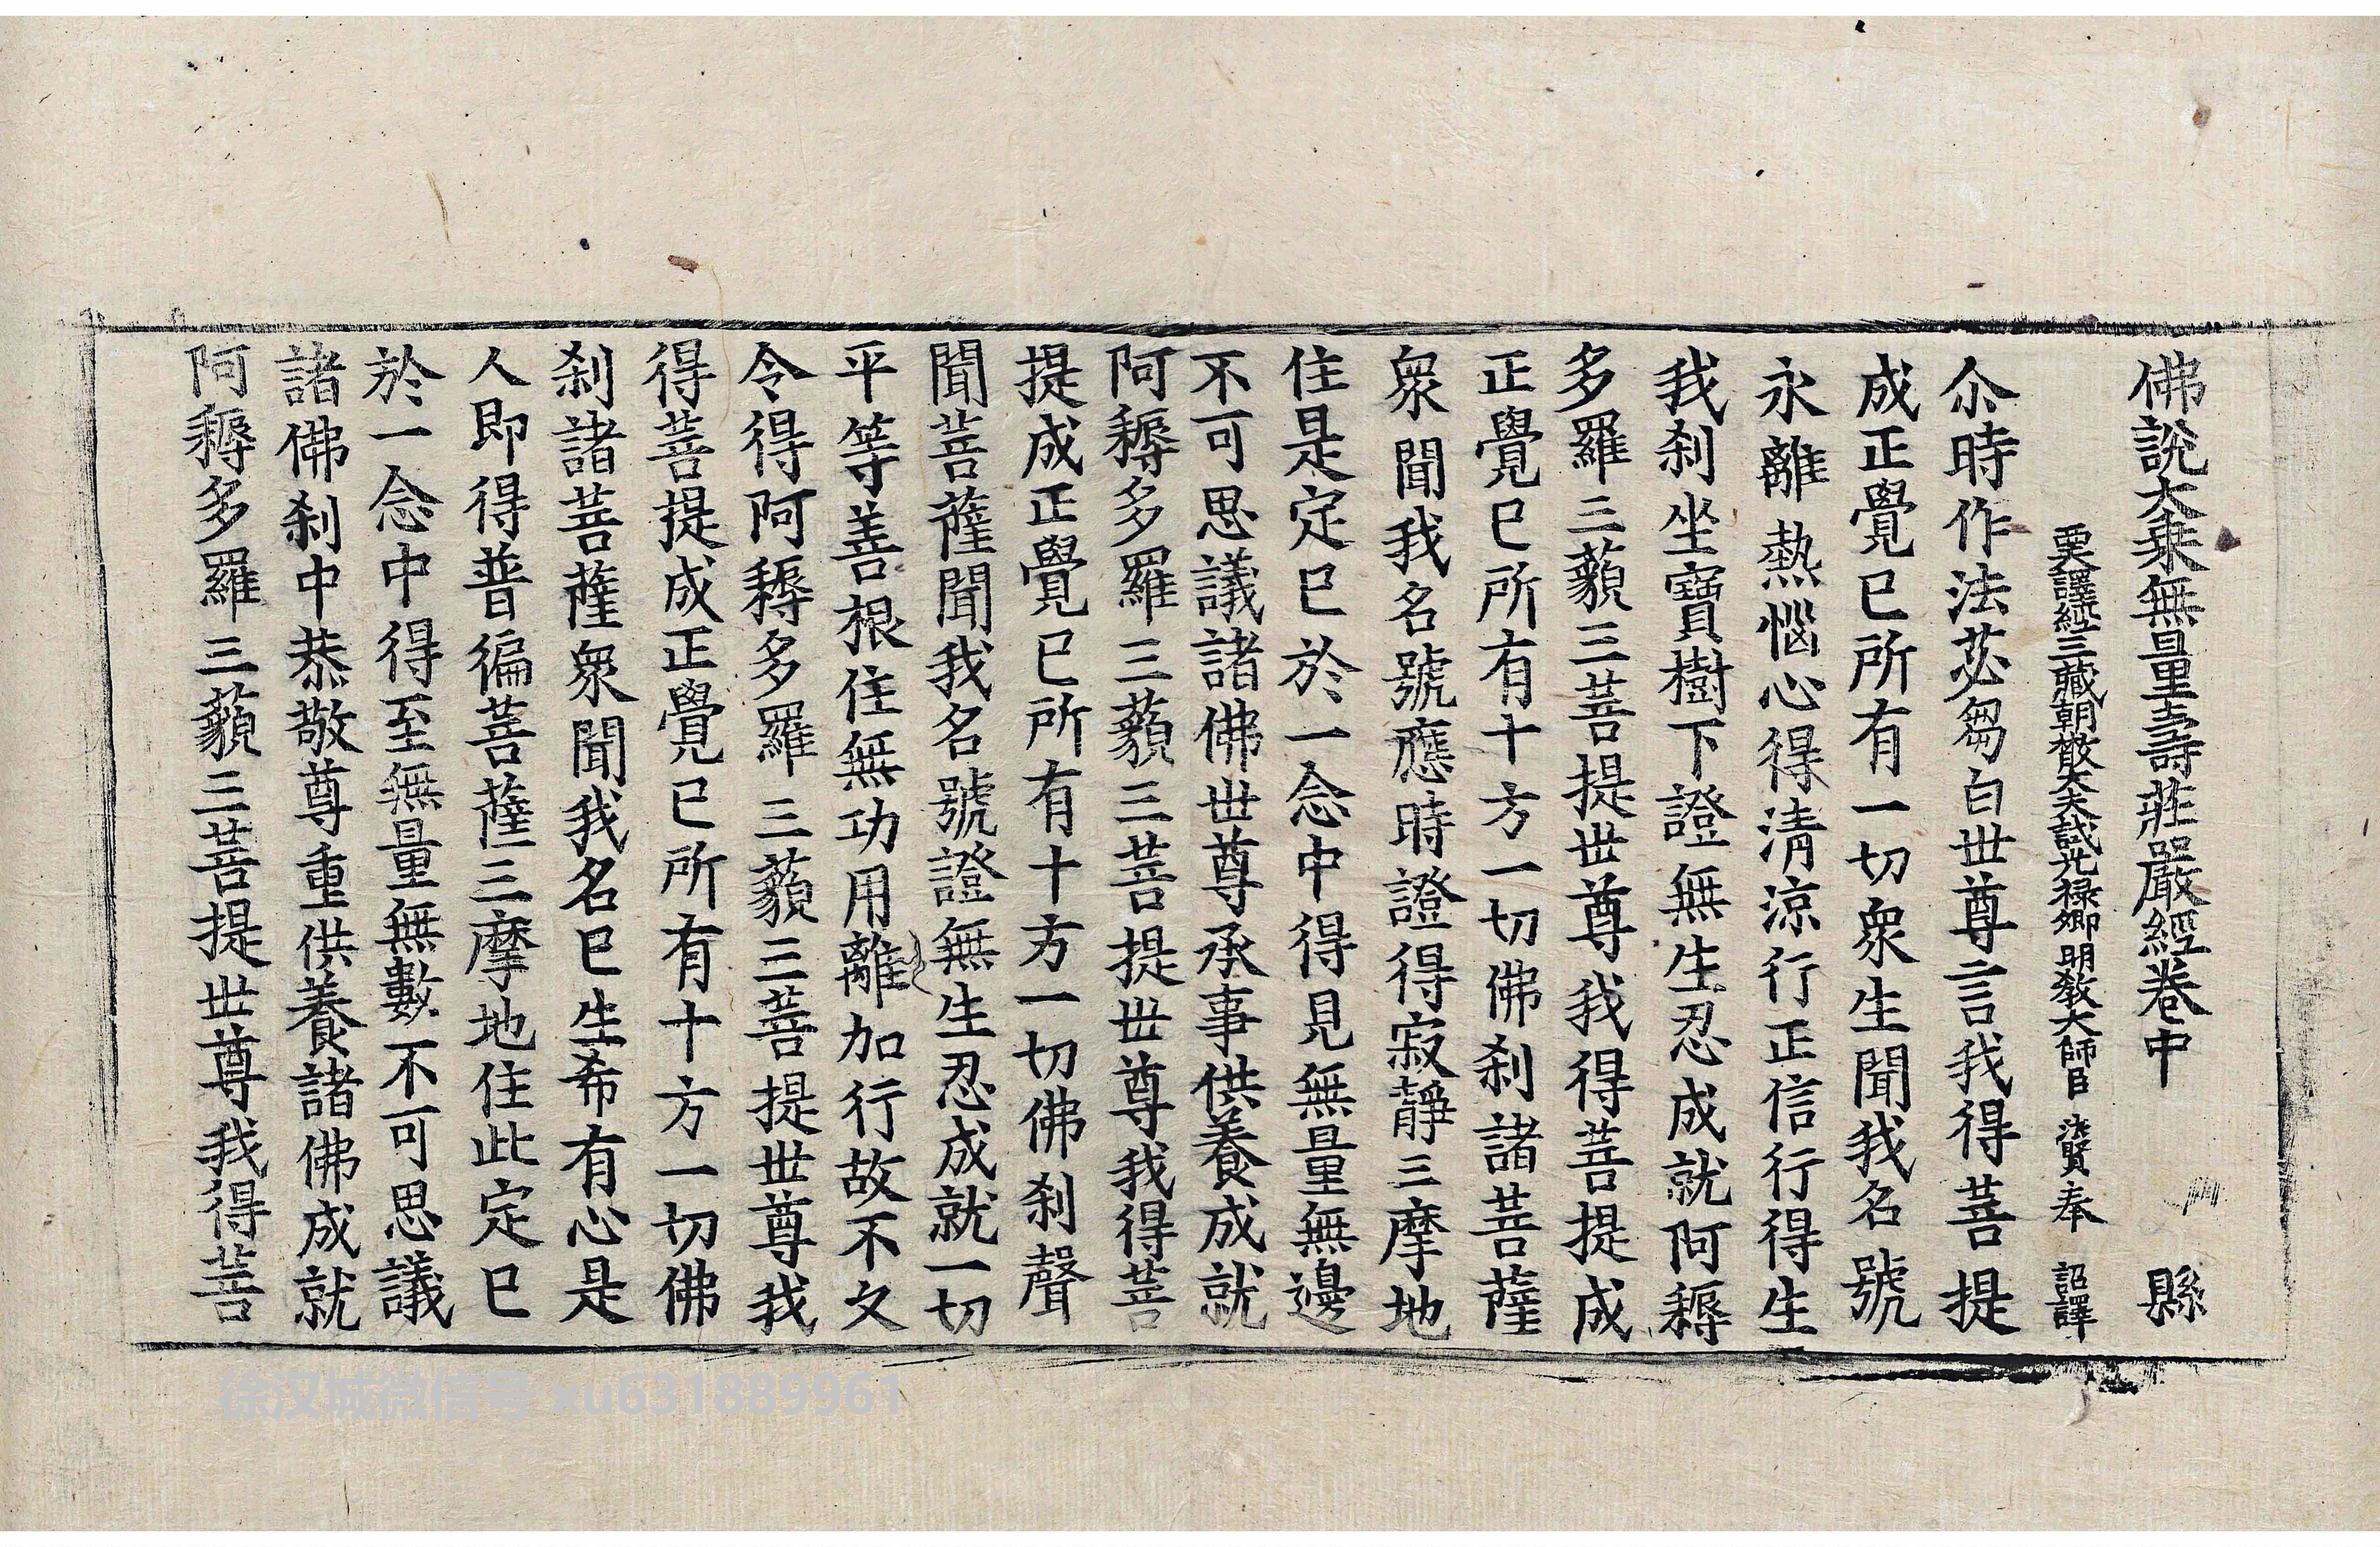 佛說大乘無量壽莊嚴經卷中 縣
西天譯經三藏朝散大夫試光祿卿明教大師臣法賢奉 詔譯
尒時作法苾芻白世尊言我得菩提
成正覺已所有一切衆生聞我名號
永離熱惱心得清涼行正信行得生
我刹坐寶樹下證無生忍成就阿耨
多羅三藐三菩提世尊我得菩提成
正覺已所有十方一切佛刹諸菩薩
衆聞我名號應時證得寂靜三摩地
住是定已於一念中得見無量無邊
不可思議諸佛世尊承事供養成就
阿耨多羅三藐三菩提世尊我得菩
提成正覺已所有十方一切佛刹聲
聞菩薩聞我名號證無生忍成就一切
平等善根住無功用離加行故不久
令得阿耨多羅三藐三菩提世尊我
得菩提成正覺已所有十方一切佛
刹諸菩薩衆聞我名已生希有心是
人即得普徧菩薩三摩地住此定已
於一念中得至無量無數不可思議
諸佛刹中恭敬尊重供養諸佛成就
阿耨多羅三藐三菩提世尊我得菩
徐汉城微信号 xu631889961